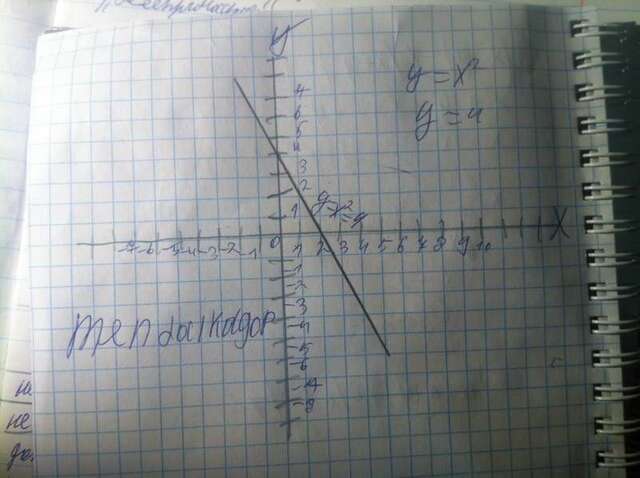 y
y = x²
y = 4
4
6
5
4
3
2
1
y = x² = 4
X
-7 -6 -5 -4 -3 -2 -1 0 1 2 3 4 5 6 7 8 9 10
-1
-2
-3
-4
-5
-6
-7
-8
на
не
да.